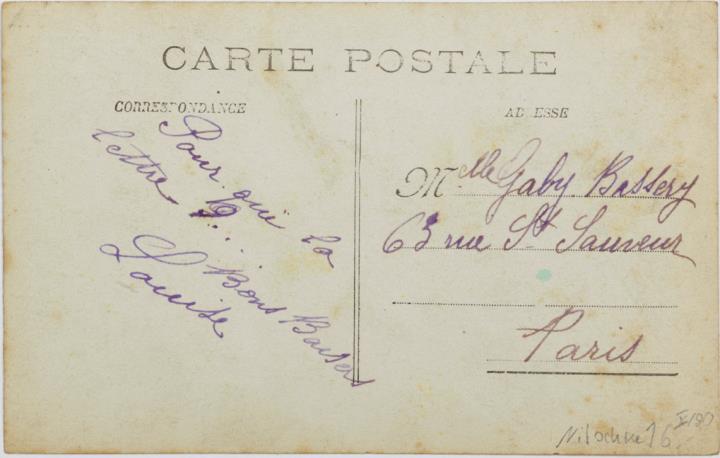 CARTE POSTALE
CORRESPONDANCE
Pour qui la
lettre ?...
Bons Baisers
Louise
ADRESSE
Mlle Gaby Bassery
63 rue St Sauveur
Paris